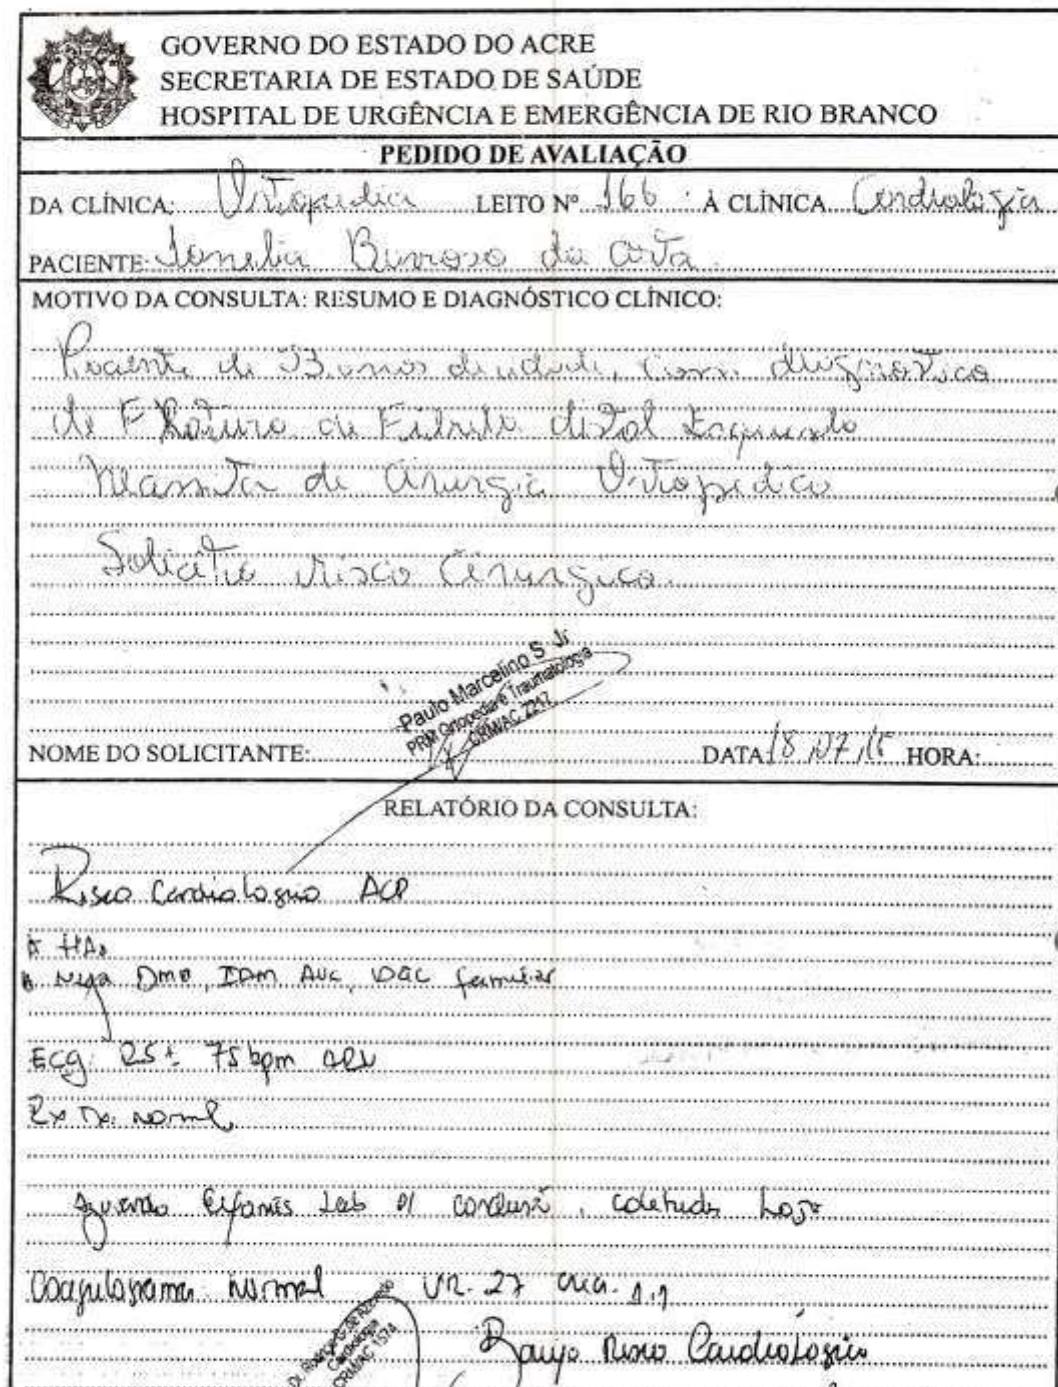 GOVERNO DO ESTADO DO ACRE
SECRETARIA DE ESTADO DE SAÚDE
HOSPITAL DE URGÊNCIA E EMERGÊNCIA DE RIO BRANCO
PEDIDO DE AVALIAÇÃO
DA CLÍNICA: Ortopedia LEITO Nº 166 À CLÍNICA Cardiologia
PACIENTE: Barroso da Costa
MOTIVO DA CONSULTA: RESUMO E DIAGNÓSTICO CLÍNICO:
Paciente de anos de idade, com diagnóstico
de Fratura de distal Esquerdo
Necessita de Cirurgia Ortopédica
Solicito risco Cirurgico.
Paulo Marcelino S. Jr
PRM Ortopedia e Traumatologia
CRM/AC
NOME DO SOLICITANTE: DATA 18 07 HORA:
RELATÓRIO DA CONSULTA:
Risco Cardiologico
Nega IAM AVC, DAC familiar
ECG: 75 bpm
Rx Tx: normal
Aguardo Exames Lab p/ conclusão, coletados hoje
Coagulograma normal UR. 27 Crea. 1.1
Baixo Risco Cardiológico
Cardiologia
CRM/AC 1574